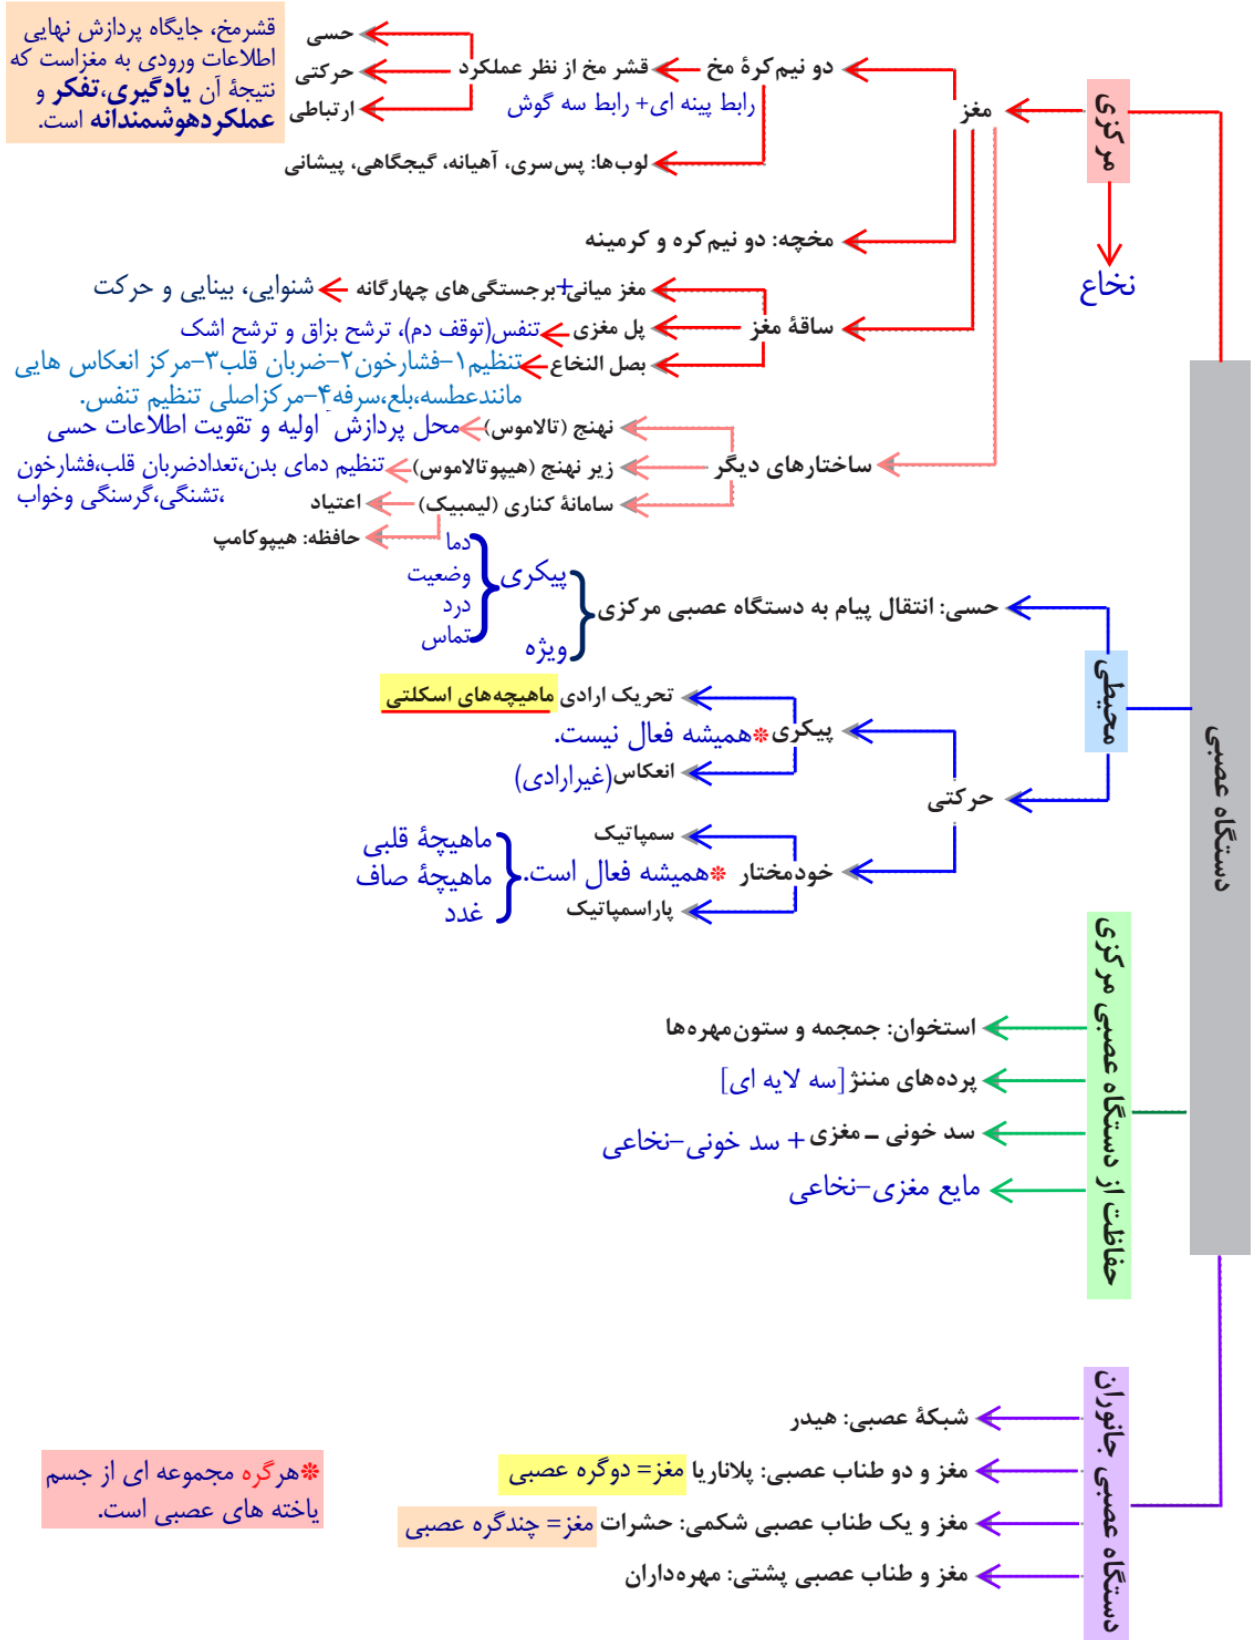 دستگاه عصبی
مرکزی
نخاع
مغز
دو نیم‌کرهٔ مخ
قشر مخ از نظر عملکرد
حسی
حرکتی
ارتباطی
قشرمخ، جایگاه پردازش نهایی
اطلاعات ورودی به مغزاست که
نتیجهٔ آن یادگیری،تفکر و
عملکردهوشمندانه است.
رابط پینه ای+ رابط سه گوش
لوب‌ها: پس‌سری، آهیانه، گیجگاهی، پیشانی
مخچه: دو نیم‌کره و کرمینه
ساقهٔ مغز
مغز میانی+برجستگی‌های چهارگانه
شنوایی، بینایی و حرکت
پل مغزی
تنفس(توقف دم)، ترشح بزاق و ترشح اشک
بصل النخاع
تنظیم۱-فشارخون۲-ضربان قلب۳-مرکز انعکاس هایی
مانندعطسه،بلع،سرفه۴-مرکزاصلی تنظیم تنفس.
ساختارهای دیگر
نهنج (تالاموس)
محل پردازش اولیه و تقویت اطلاعات حسی
زیر نهنج (هیپوتالاموس)
تنظیم دمای بدن،تعدادضربان قلب،فشارخون
،تشنگی،گرسنگی وخواب
سامانهٔ کناری (لیمبیک)
اعتیاد
حافظه: هیپوکامپ
محیطی
حسی: انتقال پیام به دستگاه عصبی مرکزی
پیکری
دما
وضعیت
درد
تماس
ویژه
حرکتی
پیکری
تحریک ارادی ماهیچه‌های اسکلتی
*همیشه فعال نیست.
انعکاس(غیرارادی)
خودمختار
سمپاتیک
*همیشه فعال است.
پاراسمپاتیک
ماهیچهٔ قلبی
ماهیچهٔ صاف
غدد
حفاظت از دستگاه عصبی مرکزی
استخوان: جمجمه و ستون‌مهره‌ها
پرده‌های مننژ[سه لایه ای]
سد خونی – مغزی + سد خونی-نخاعی
مایع مغزی-نخاعی
دستگاه عصبی جانوران
شبکهٔ عصبی: هیدر
مغز و دو طناب عصبی: پلاناریا مغز= دوگره عصبی
مغز و یک طناب عصبی شکمی: حشرات مغز= چندگره عصبی
مغز و طناب عصبی پشتی: مهره‌داران
*هرگره مجموعه ای از جسم
یاخته های عصبی است.